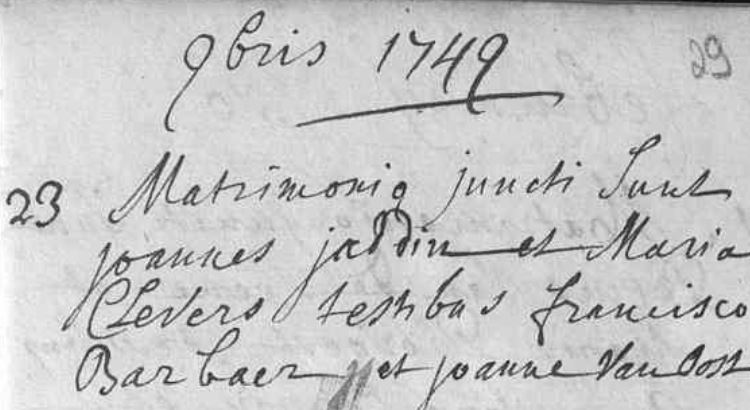 9bris 1749
29
23 Matrimonio juncti Sunt
joannes jaddin et Maria
Clevers testibus francisco
Barbaer et joanne Van Oost